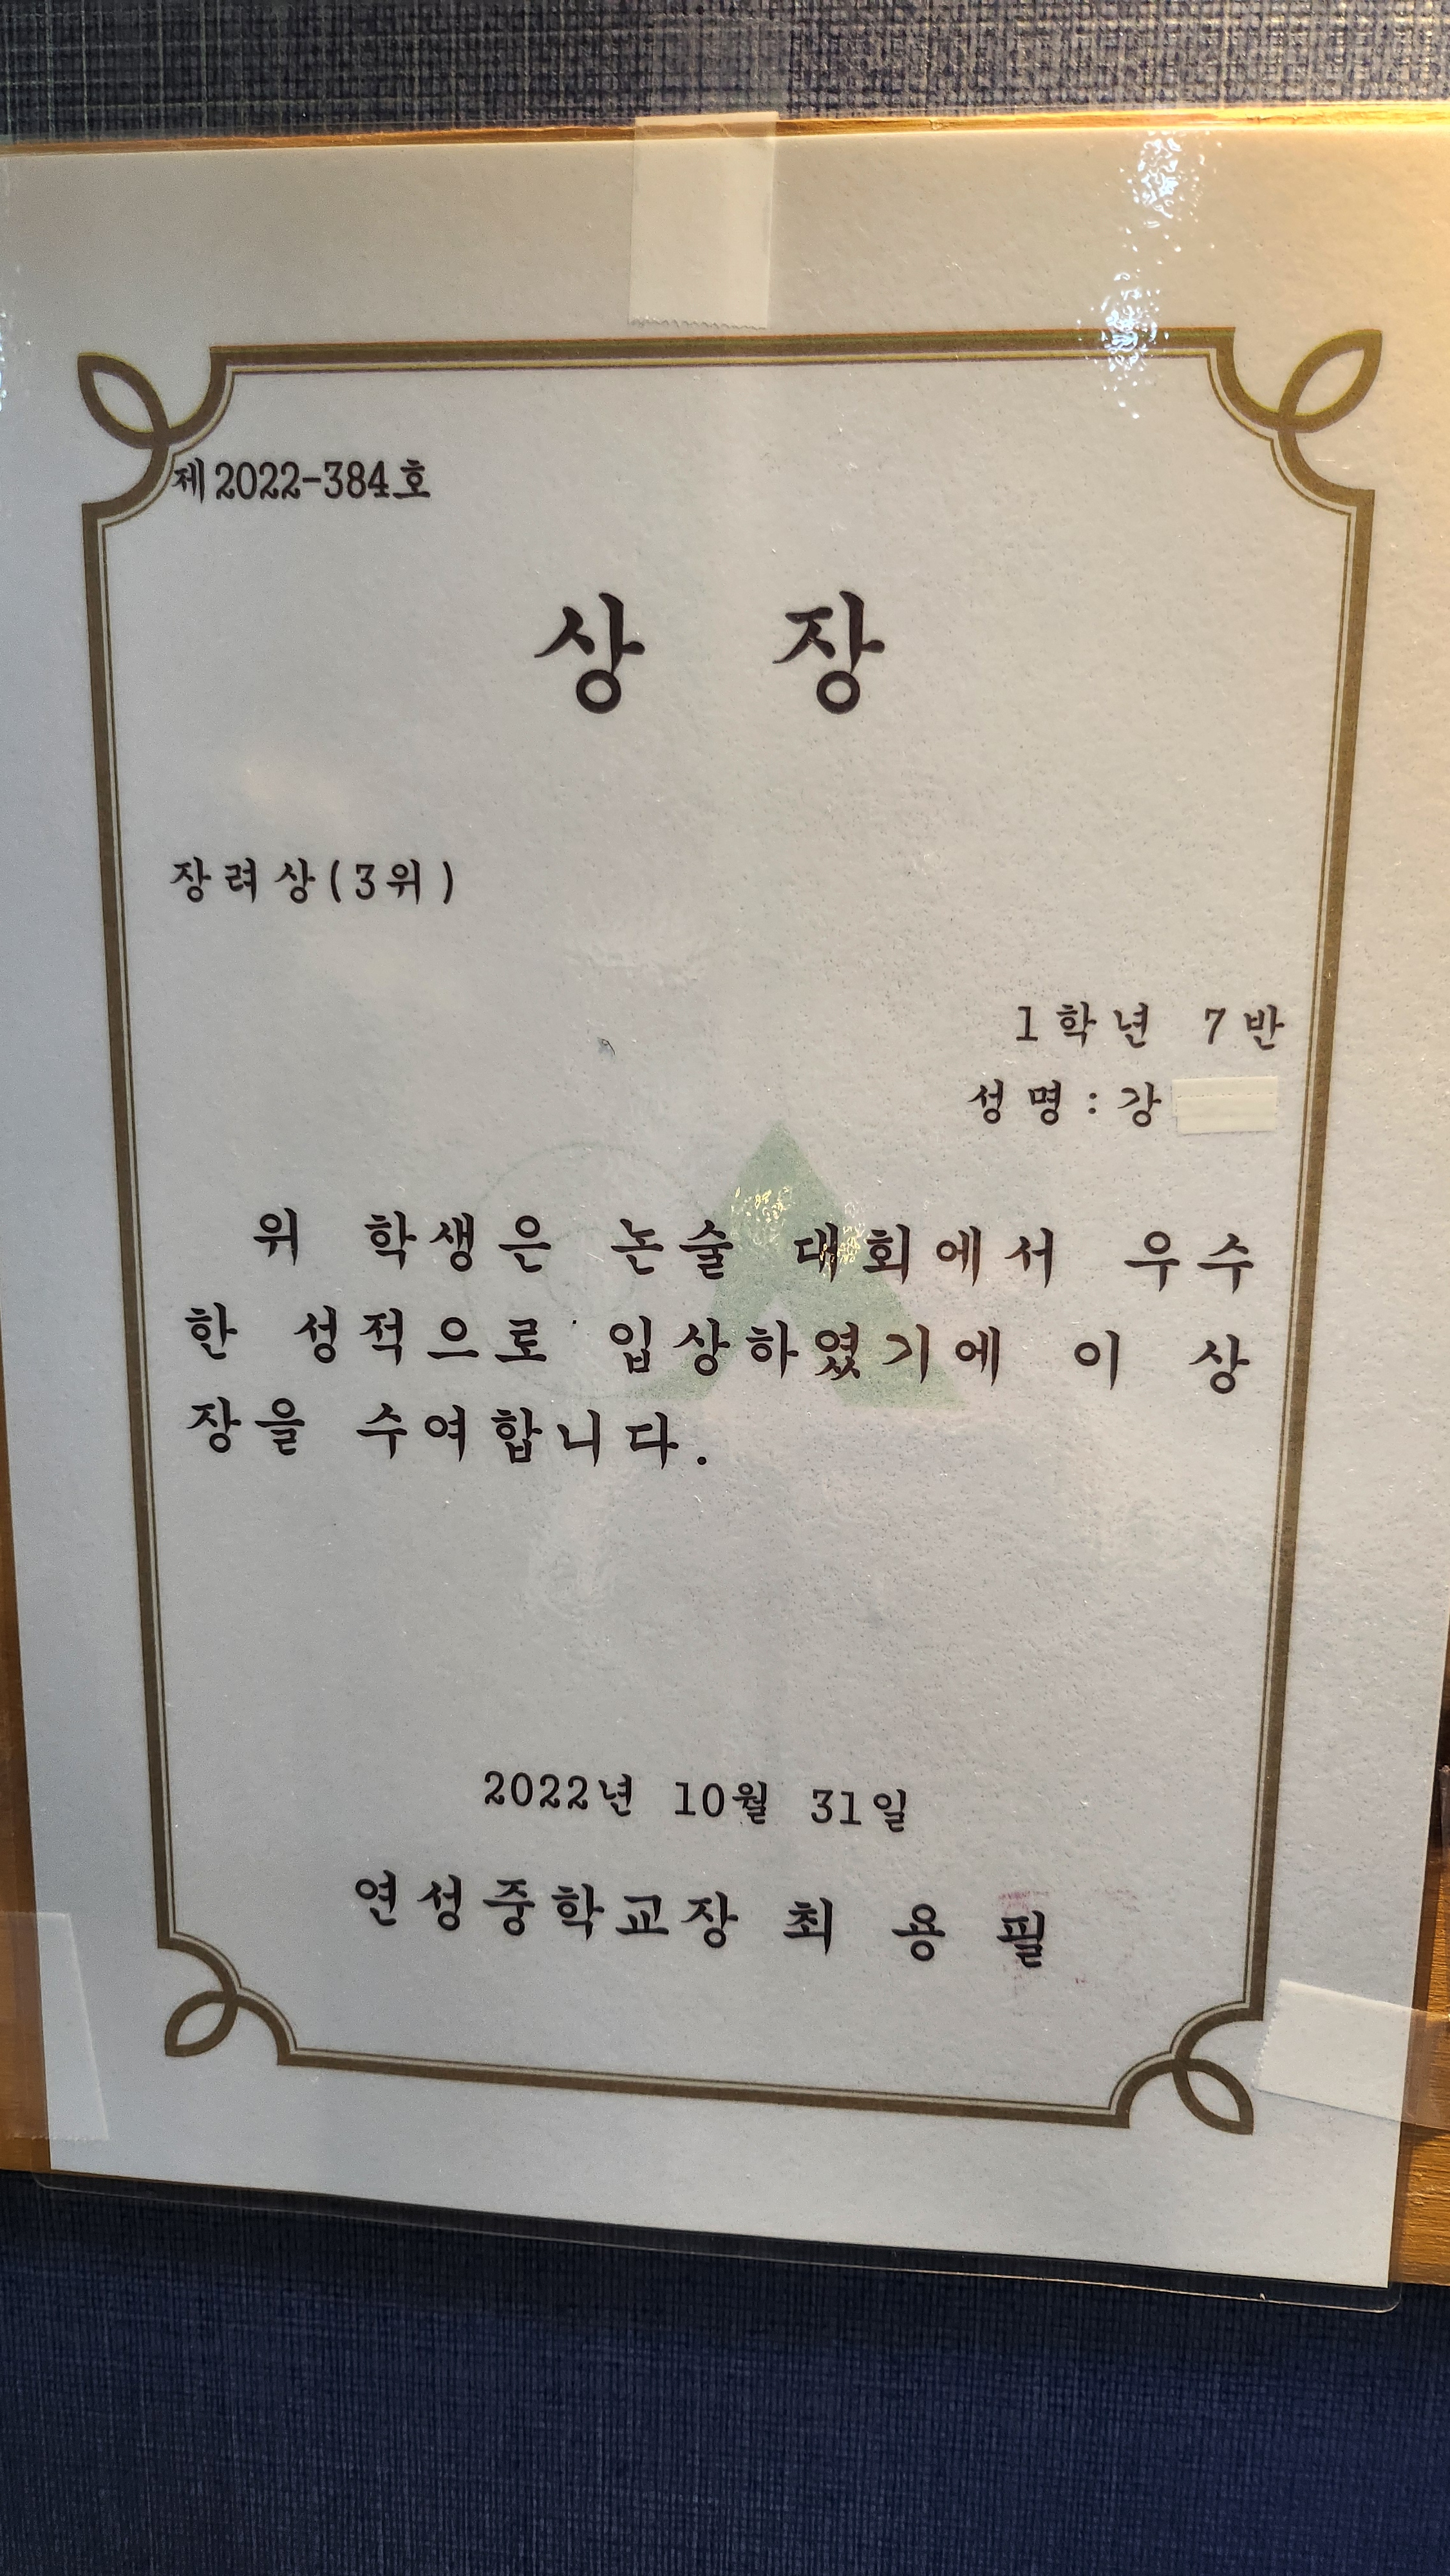 제2022-384호
상 장
장려상(3위)
1학년 7반
성명:강
위 학생은 논술 대회에서 우수
한 성적으로 입상하였기에 이 상
장을 수여합니다.
2022년 10월 31일
연성중학교장 최 용 필